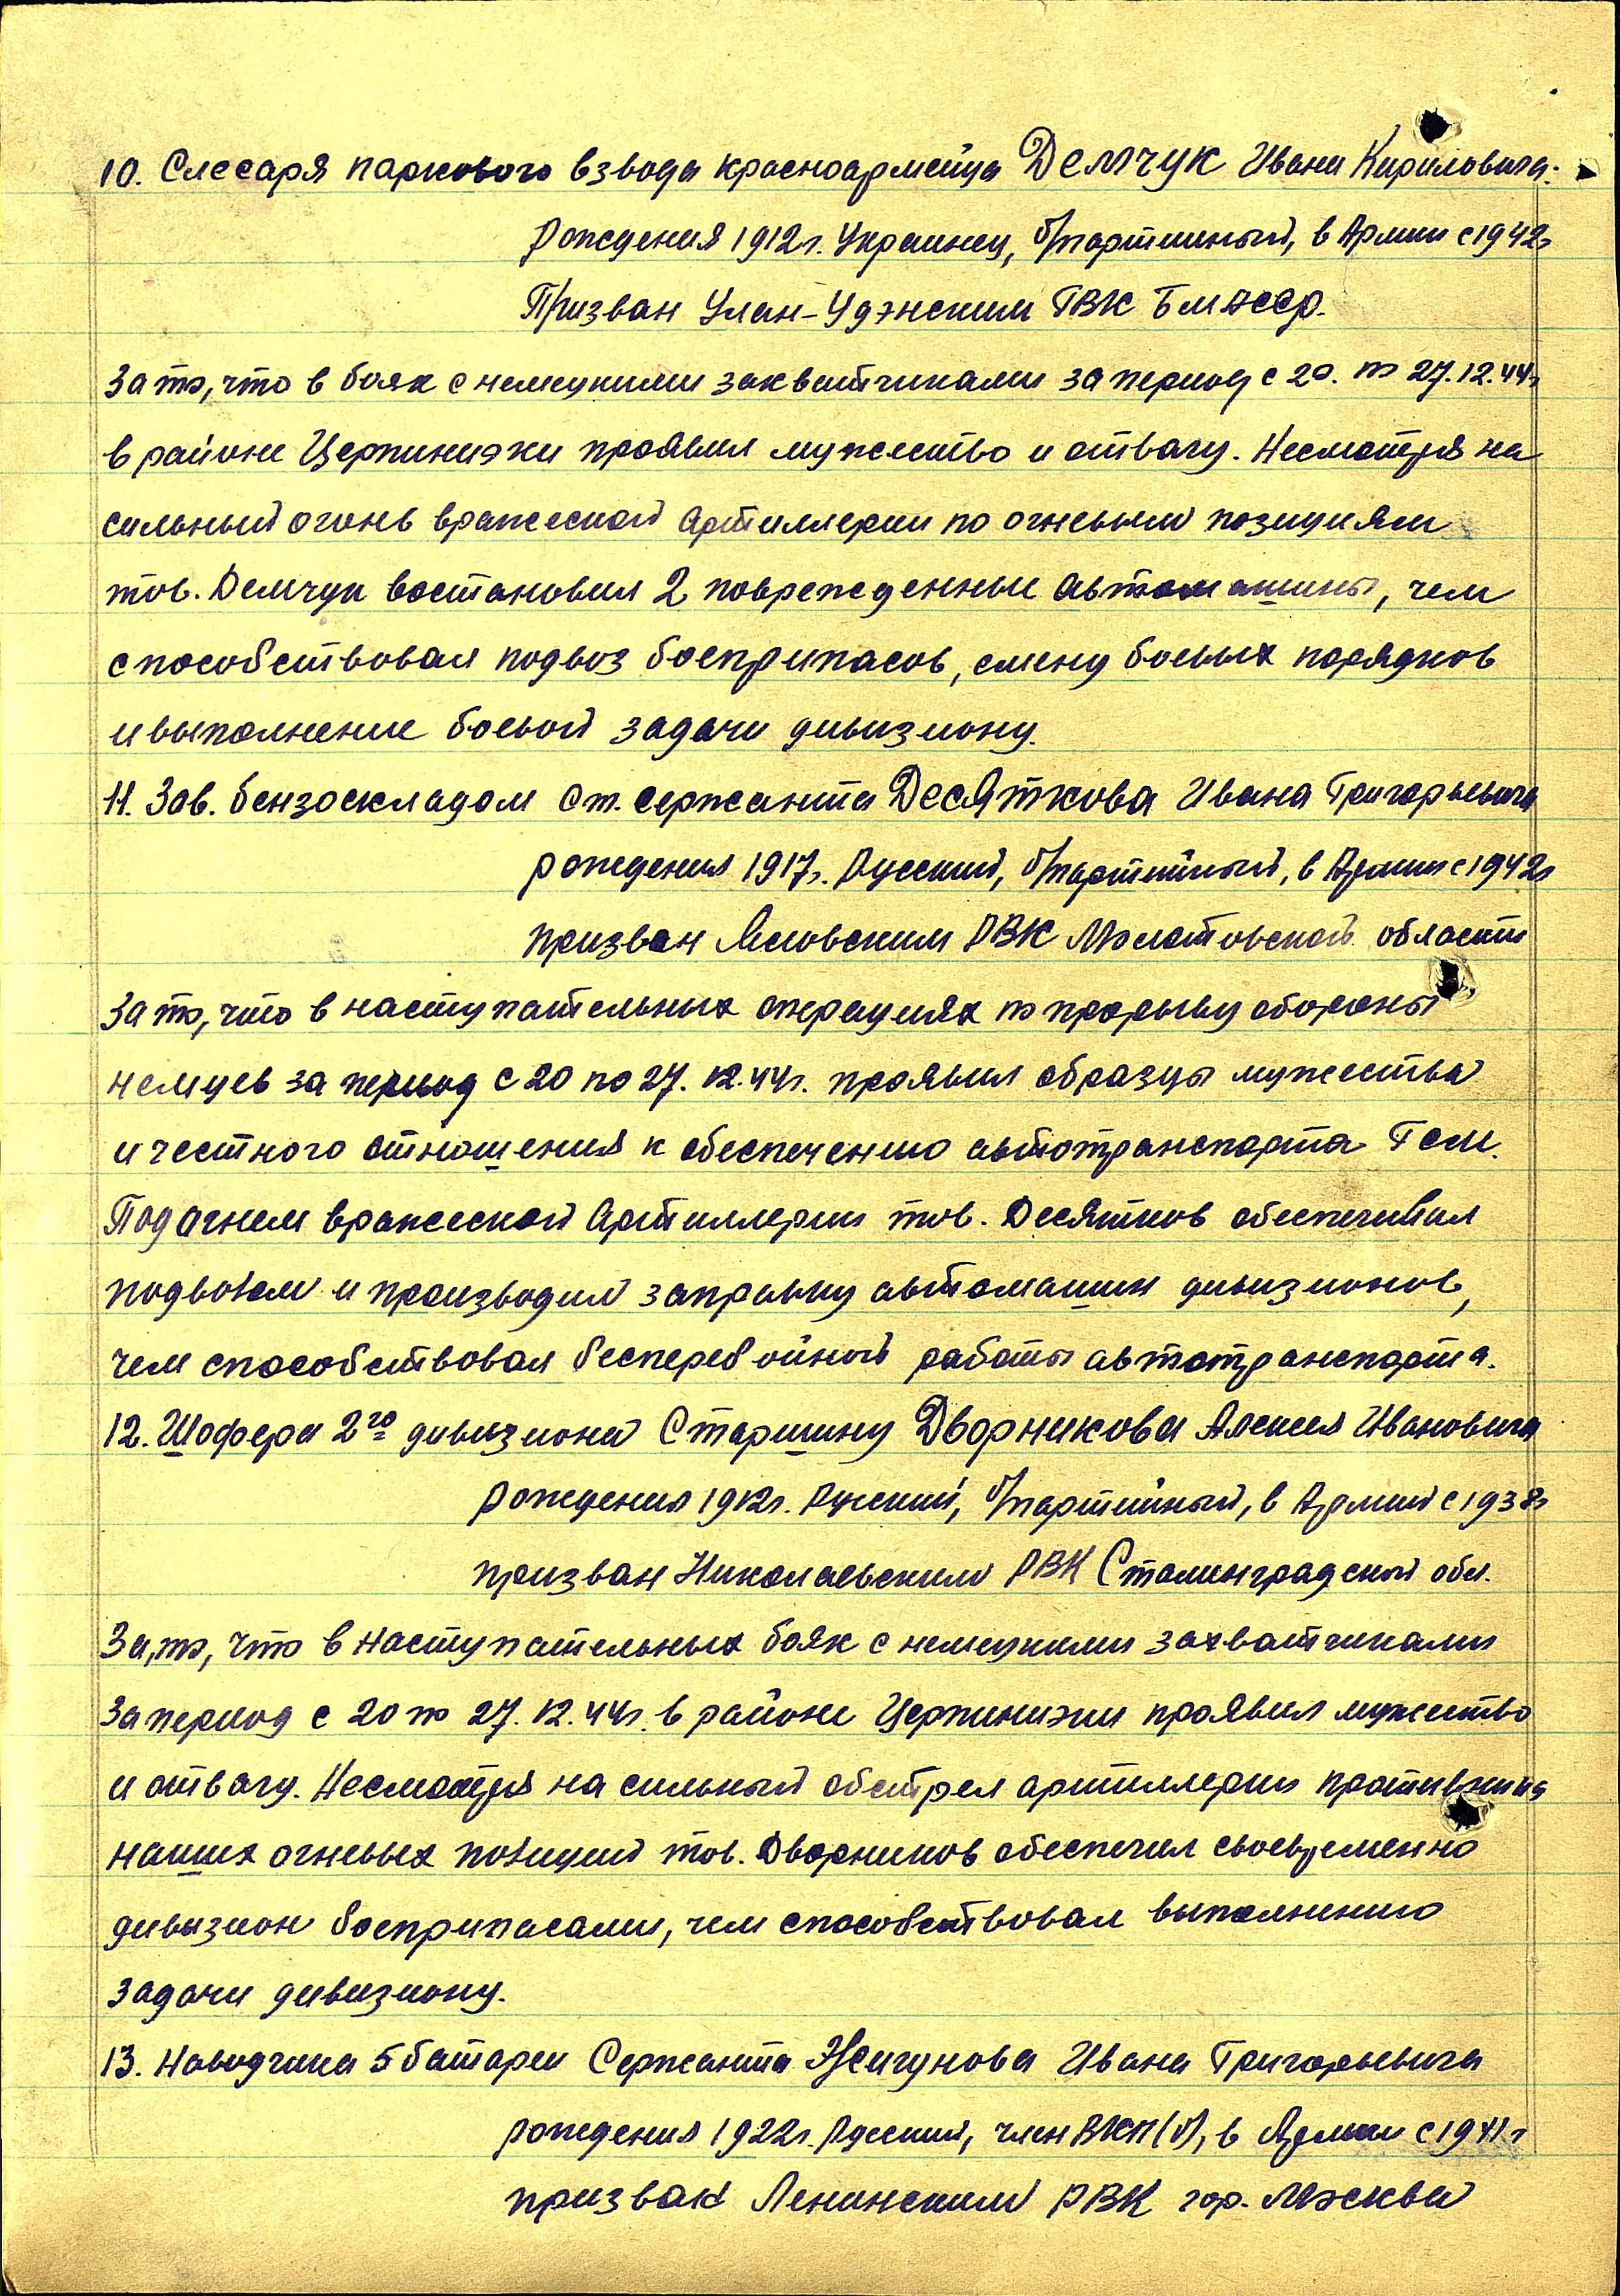 10. Слесаря паркового взвода красноармейца Демчук Ивана Кириловича.
рождения 1912г. Украинец, б/партийный, в Армии с 1942г
Призван Улан-Удэнским ГВК БМАССР.
За то, что в боях с немецкими захватчиками за период с 20. по 27.12.44г
в районе Церпиниэки проявил мужество и отвагу. Несмотря на
сильный огонь вражеской артиллерии по огневым позициям
тов. Демчук востановил 2 поврежденные автомашины, чем
способствовал подвоз боеприпасов, смену боевых порядков
и выполнение боевой задачи дивизиону.
11. Зав. бензоскладом Ст. сержанта Десяткова Ивана Григорьевича
рождения 1917г. Русский, б/партийный, в Армии с 1942г
призван РВК Молотовской области
За то, что в наступательных операциях по прорыву обороны
немцев за период с 20 по 27.12.44г. проявил образцы мужества
и честного отношения к обеспечению автотранспорта Гсм.
Под огнем вражеской Артиллерии тов. Десятков обеспечивал
подвозом и производил заправку автомашин дивизионов,
чем способствовал бесперебойной работы автотранспорта.
12. Шофера 2го дивизиона Старшину Дворникова Алексея Ивановича
рождения 1912г. Русский, б/партийный, в Армии с 1938г
призван Николаевским РВК Сталинградской обл.
За, то, что в наступательных боях с немецкими захватчиками
За период с 20 по 27.12.44г. в районе Церпиниэки проявил мужество
и отвагу. Несмотря на сильный обстрел артиллерии противника
наших огневых позиций тов. Дворников обеспечил своевременно
дивизион боеприпасами, чем способствовал выполнению
задачи дивизиону.
13. Наводчика 5 батареи Сержанта Жигунова Ивана Григорьевича
рождения 1922г. Русский, член ВКП(б), в Армии с 1941г
призван Ленинским РВК гор. Москва